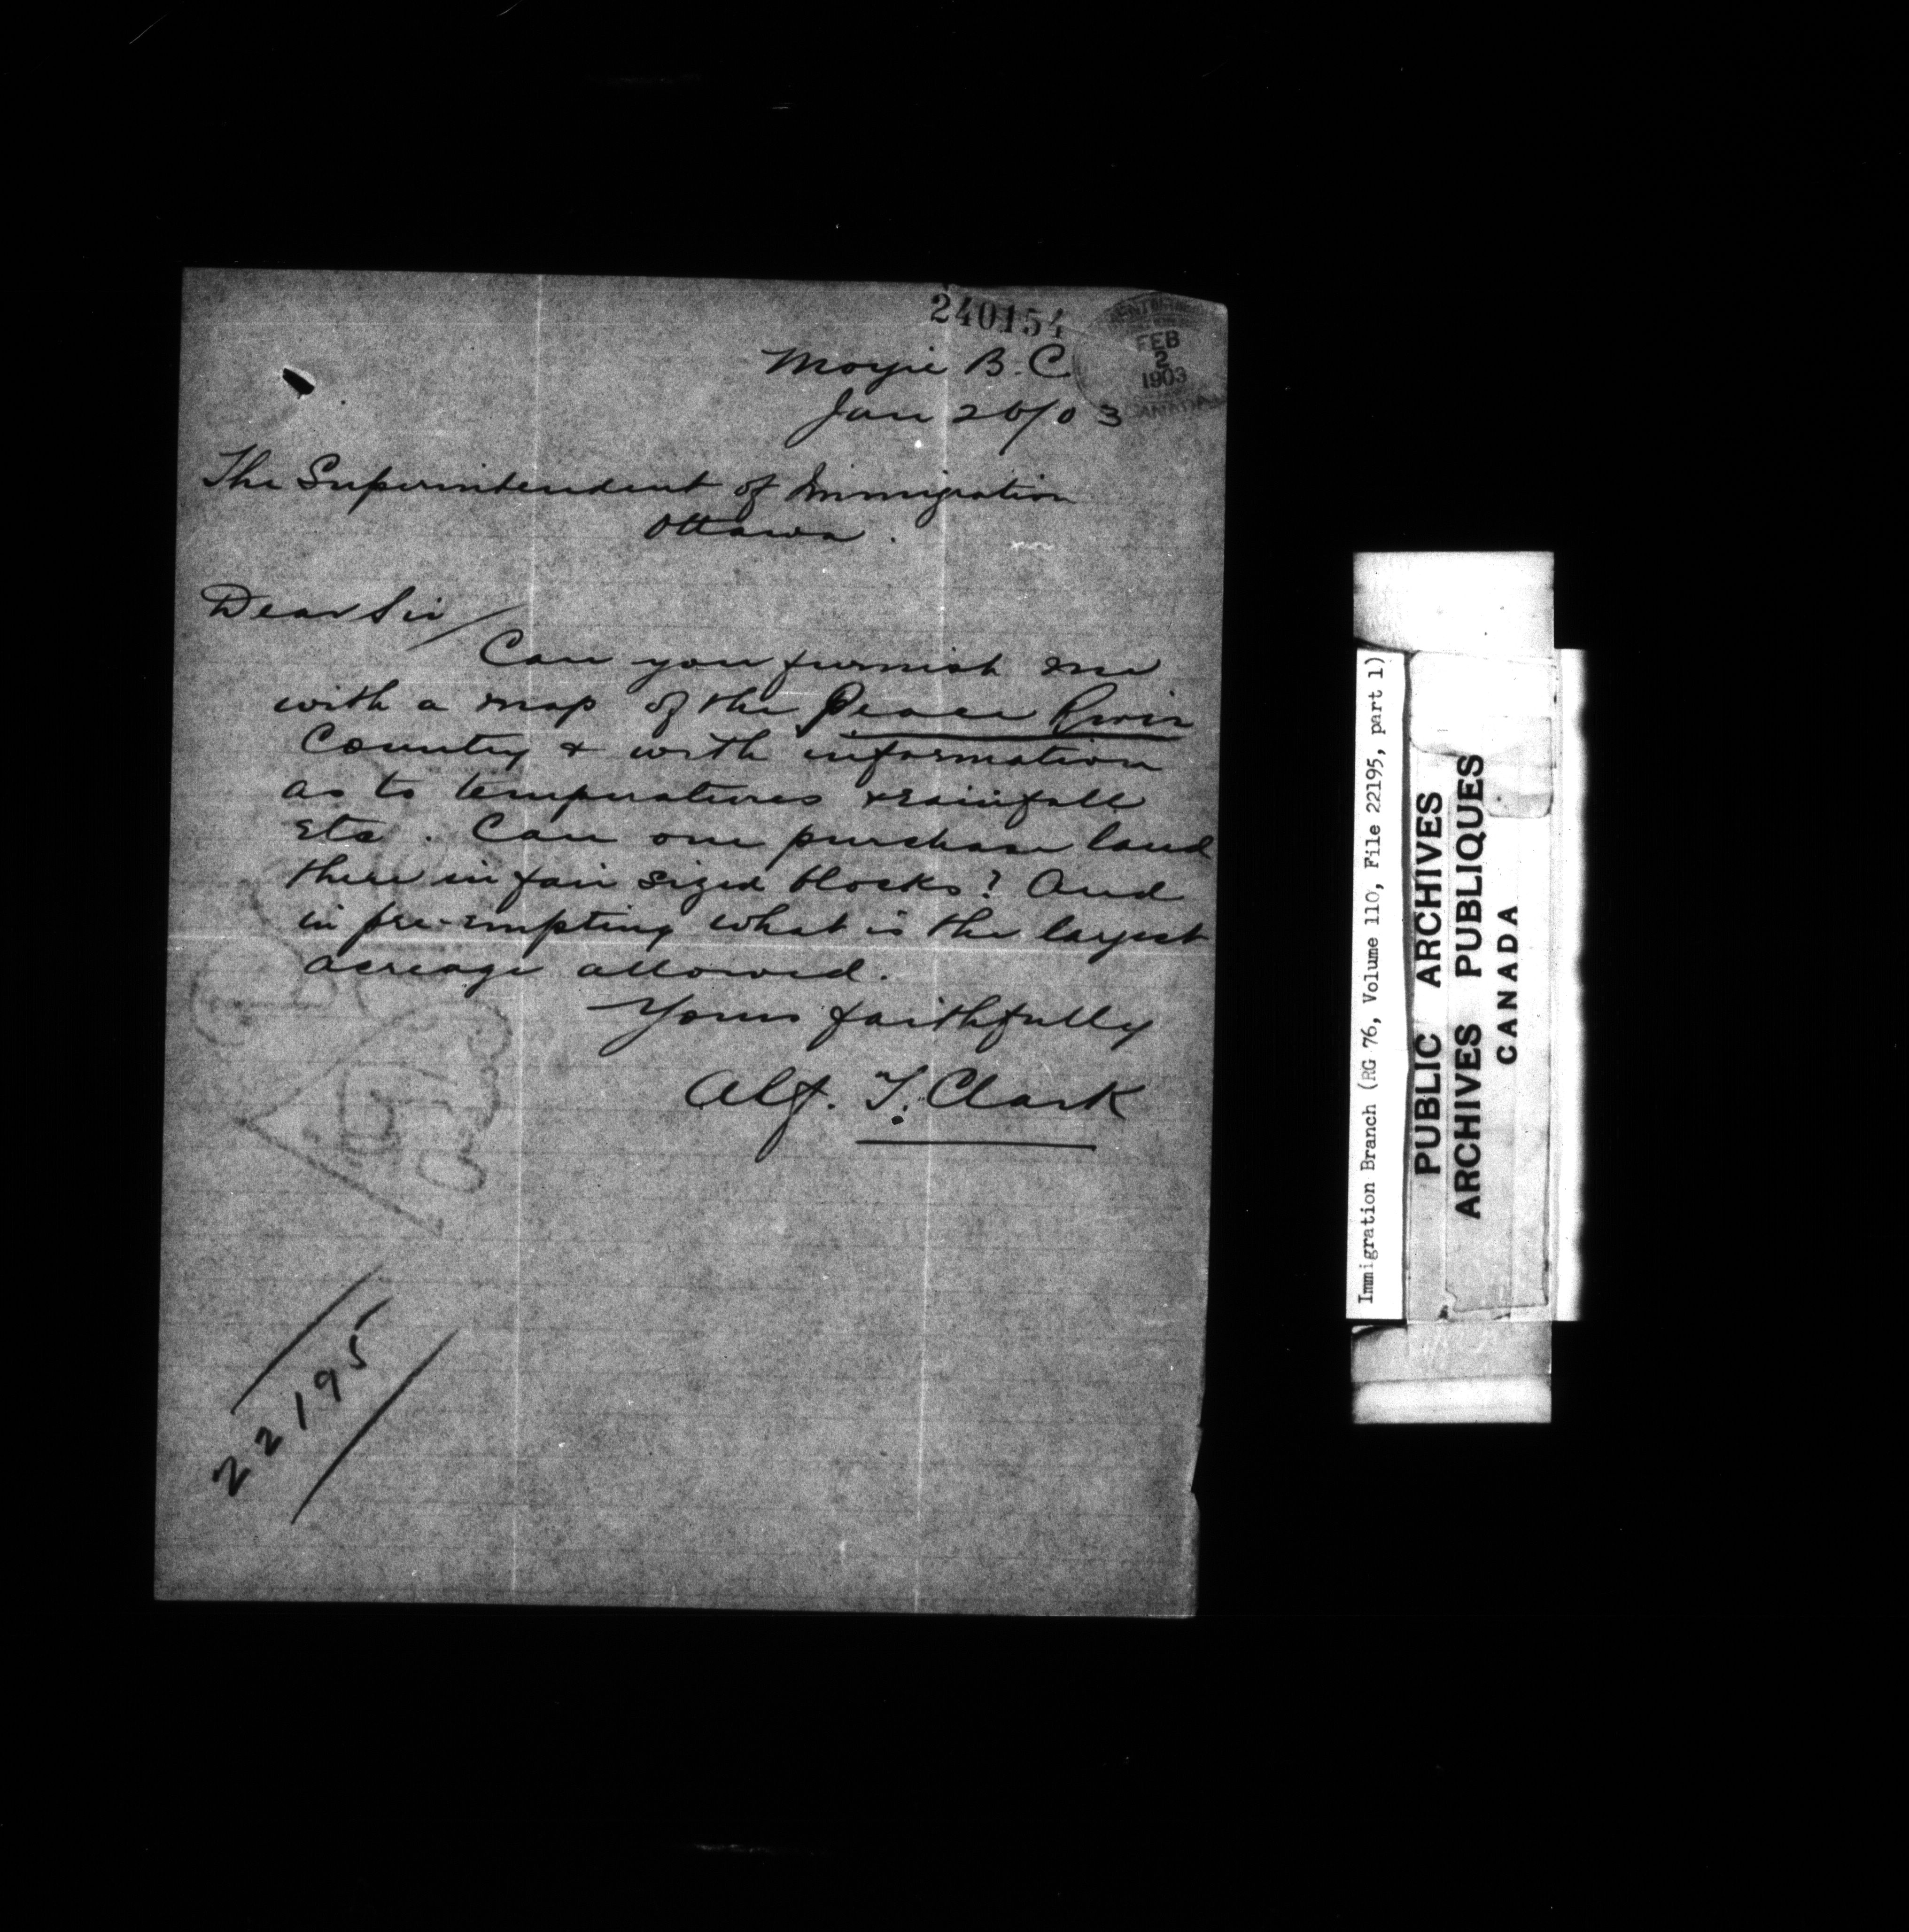 240154
FEB
2
1903
Moyie B.C
Jan 26/03
The Superintendent of Immigration
Ottawa.
Dear Sir/
Can you furnish me
with a map of the Peace River
Country & with information
as to temperatures & rainfall
etc. Can one purchase land
there in fair sized blocks? And
in pre-empting what is the largest
acreage allowed.
Yours faithfully
Alf. T. Clark
22195
Immigration Branch (RG 76, Volume 110, File 22195, part 1)
PUBLIC ARCHIVES
ARCHIVES PUBLIQUES
CANADA